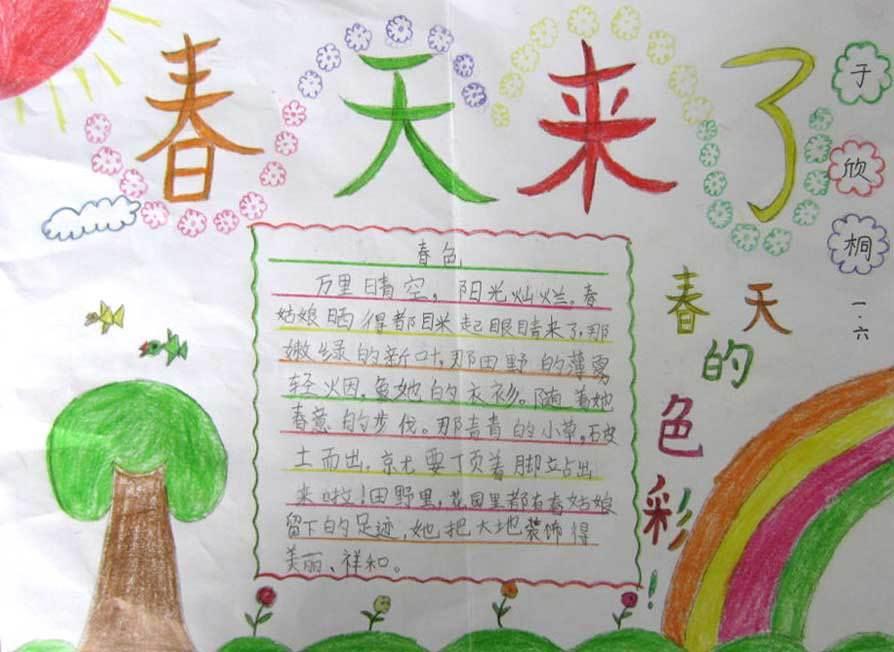 春天来了
于欣桐
一.六
春天的色彩!
春色
万里晴空，阳光灿烂。春
姑娘晒得都眯起眼睛来了，那
嫩绿的新叶，那田野的薄雾
轻烟，是她的衣衫。随着她
春意的步伐。那青青的小草。破
土而出，就要顶着脚立占出
来啦！田野里，花园里都有春姑娘
留下的足迹，她把大地装饰得
美丽、祥和。